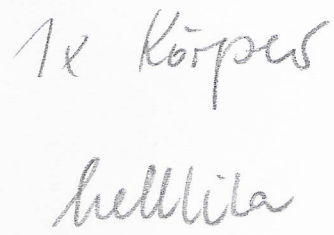 1x Körper
helllila